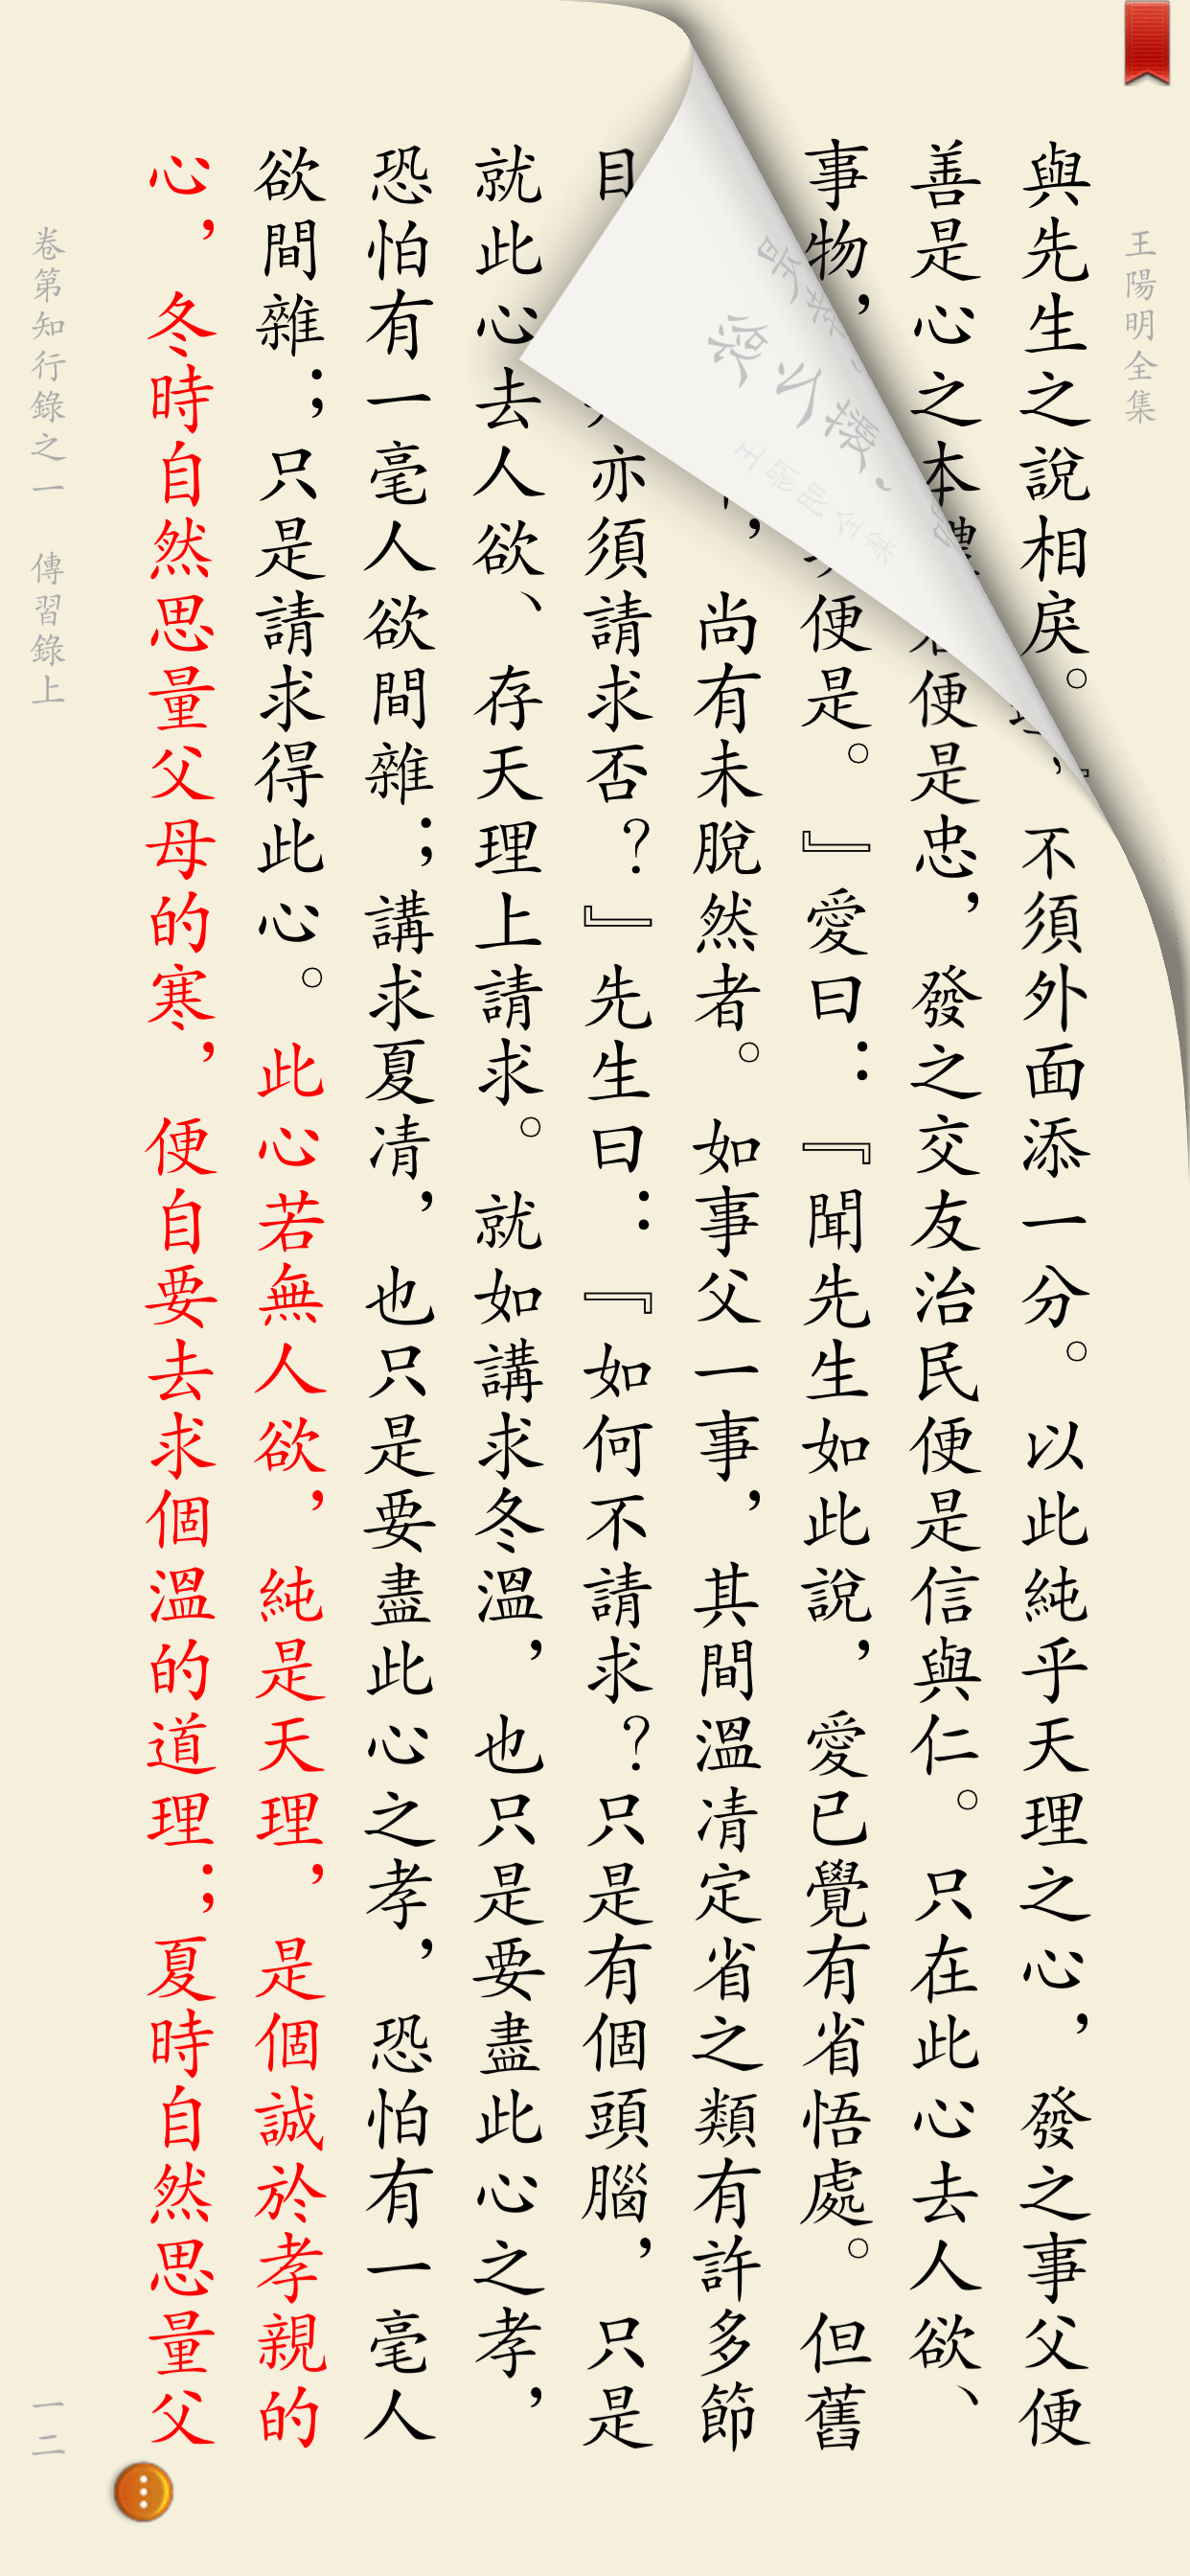 王陽明全集
與先生之說相戾。不須外面添一分。以此純乎天理之心，發之事父便
善是心之本便是忠，發之交友治民便是信與仁。只在此心去人欲、
事物，便是。』愛曰：『聞先生如此說，愛已覺有省悟處。但舊
，尚有未脫然者。如事父一事，其間溫凊定省之類有許多節
目亦須請求否？』先生曰：『如何不請求？只是有個頭腦，只是
就此心去人欲、存天理上請求。就如講求冬溫，也只是要盡此心之孝，
恐怕有一毫人欲間雜；講求夏凊，也只是要盡此心之孝，恐怕有一毫人
欲間雜；只是請求得此心。此心若無人欲，純是天理，是個誠於孝親的
心，冬時自然思量父母的寒，便自要去求個溫的道理；夏時自然思量父
卷第知行錄之一　傳習錄上
一二